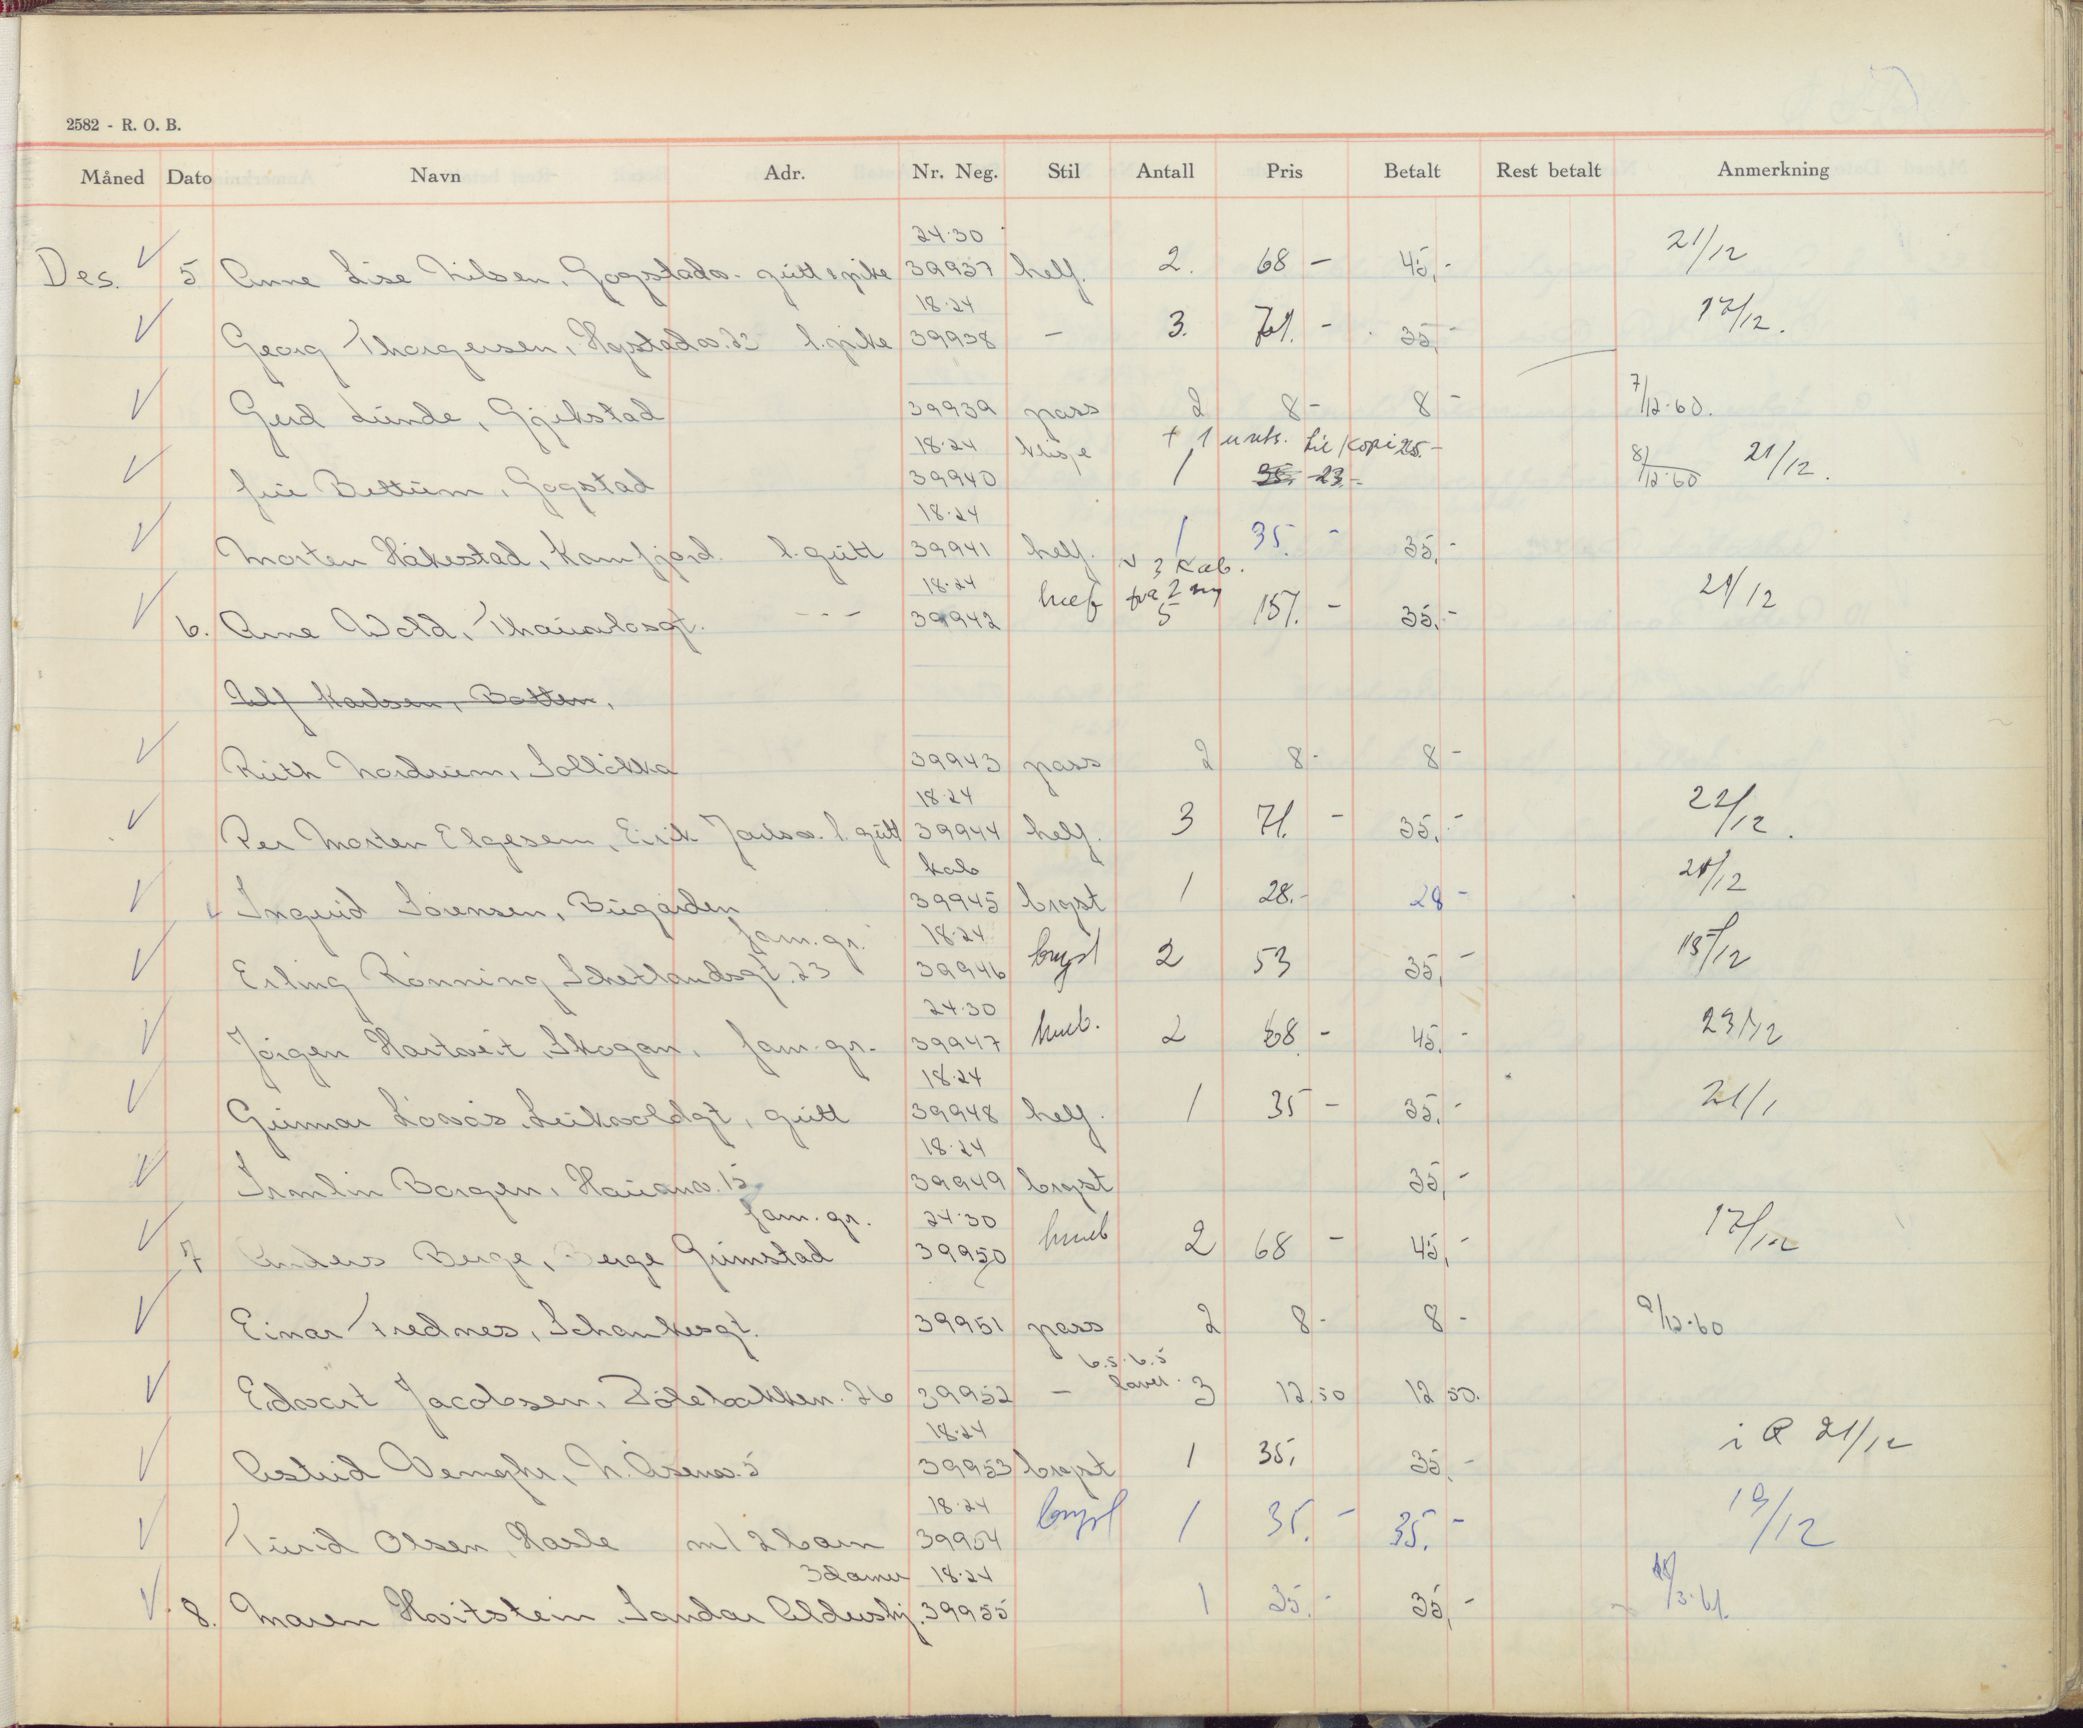 2582 - R. O. B.
Måned Dato Navn Adr. Nr. Neg. Stil Antall Pris Betalt Rest betalt Anmerkning
24·30
Des. 5 Anne Lise Nilsen, Gogstadv. gutt & pike 39937 helf. 2. 68 - 45,- 21/12
18·24
Georg Thorgersen, l. pike 39938 - 3. 71. - 35,- 17/12.
Gerd Lunde, Gjekstad 39939 pass 2 8- 8- 7/12·60.
18·24 klisje + 1 til kopi 25.-
fru Bettum, Gogstad 39940 1 23.- 8/12·60 21/12.
18·24
Morten Håkestad, Kamfjord. l. gutt 39941 helf. 1 35. - 35,-
v 3 Kab.
18·24
6. Arne Wold, Thaulowsgt. - - - 39942 5 157. - 35,- 21/12
Ulf Karlsen, Botten,
Ruth Nordrum, Solløkka 39943 pass 2 8- 8-
18·24
Per Morten Elgesem, Eirik Jarlsv. l. gutt 39944 helf. 3 71. - 35,- 22/12.
kab
Ingrid Sørensen, Bugården 39945 bryst 1 28.- 28- 20/12
fam. gr. 18·24
Erling Rønning Schetlandsgt. 23 39946 bryst 2 53 35,- 15/12
24·30
Jørgen Hartveit, Skogan, fam. gr. 39947 kneb. 2 68 - 45,- 23/12
18·24
Gunnar Løvås, Leikvoldgt, gutt 39948 helf. 1 35 - 35,- 21/1
18·24
Irmlin Borgen, Hauanv. 15 39949 bryst 35,-
fam. gr. 24·30
7 Anders Berge, Berge Grimstad 39950 kneb 2 68 - 45,- 17/12
Einar Frednes, Schankesgt. 39951 pass 2 8- 8- 9/12·60
6.5·6.5
Edvart Jacobsen, Bølebakken. 26 39952 - 3 12,50 12,50.
18·24
Astrid N. Åsenv. 5 39953 bryst 1 35, 35,- i Å 21/12
18·24
Turid Olsen, Hasle m/ 2 barn 39954 bryst 1 35. - 35. - 19/12
3 damer 18·24
8. Maren Hvitstein, Sandar Aldershj. 39955 1 35,- 35,- /3·61.